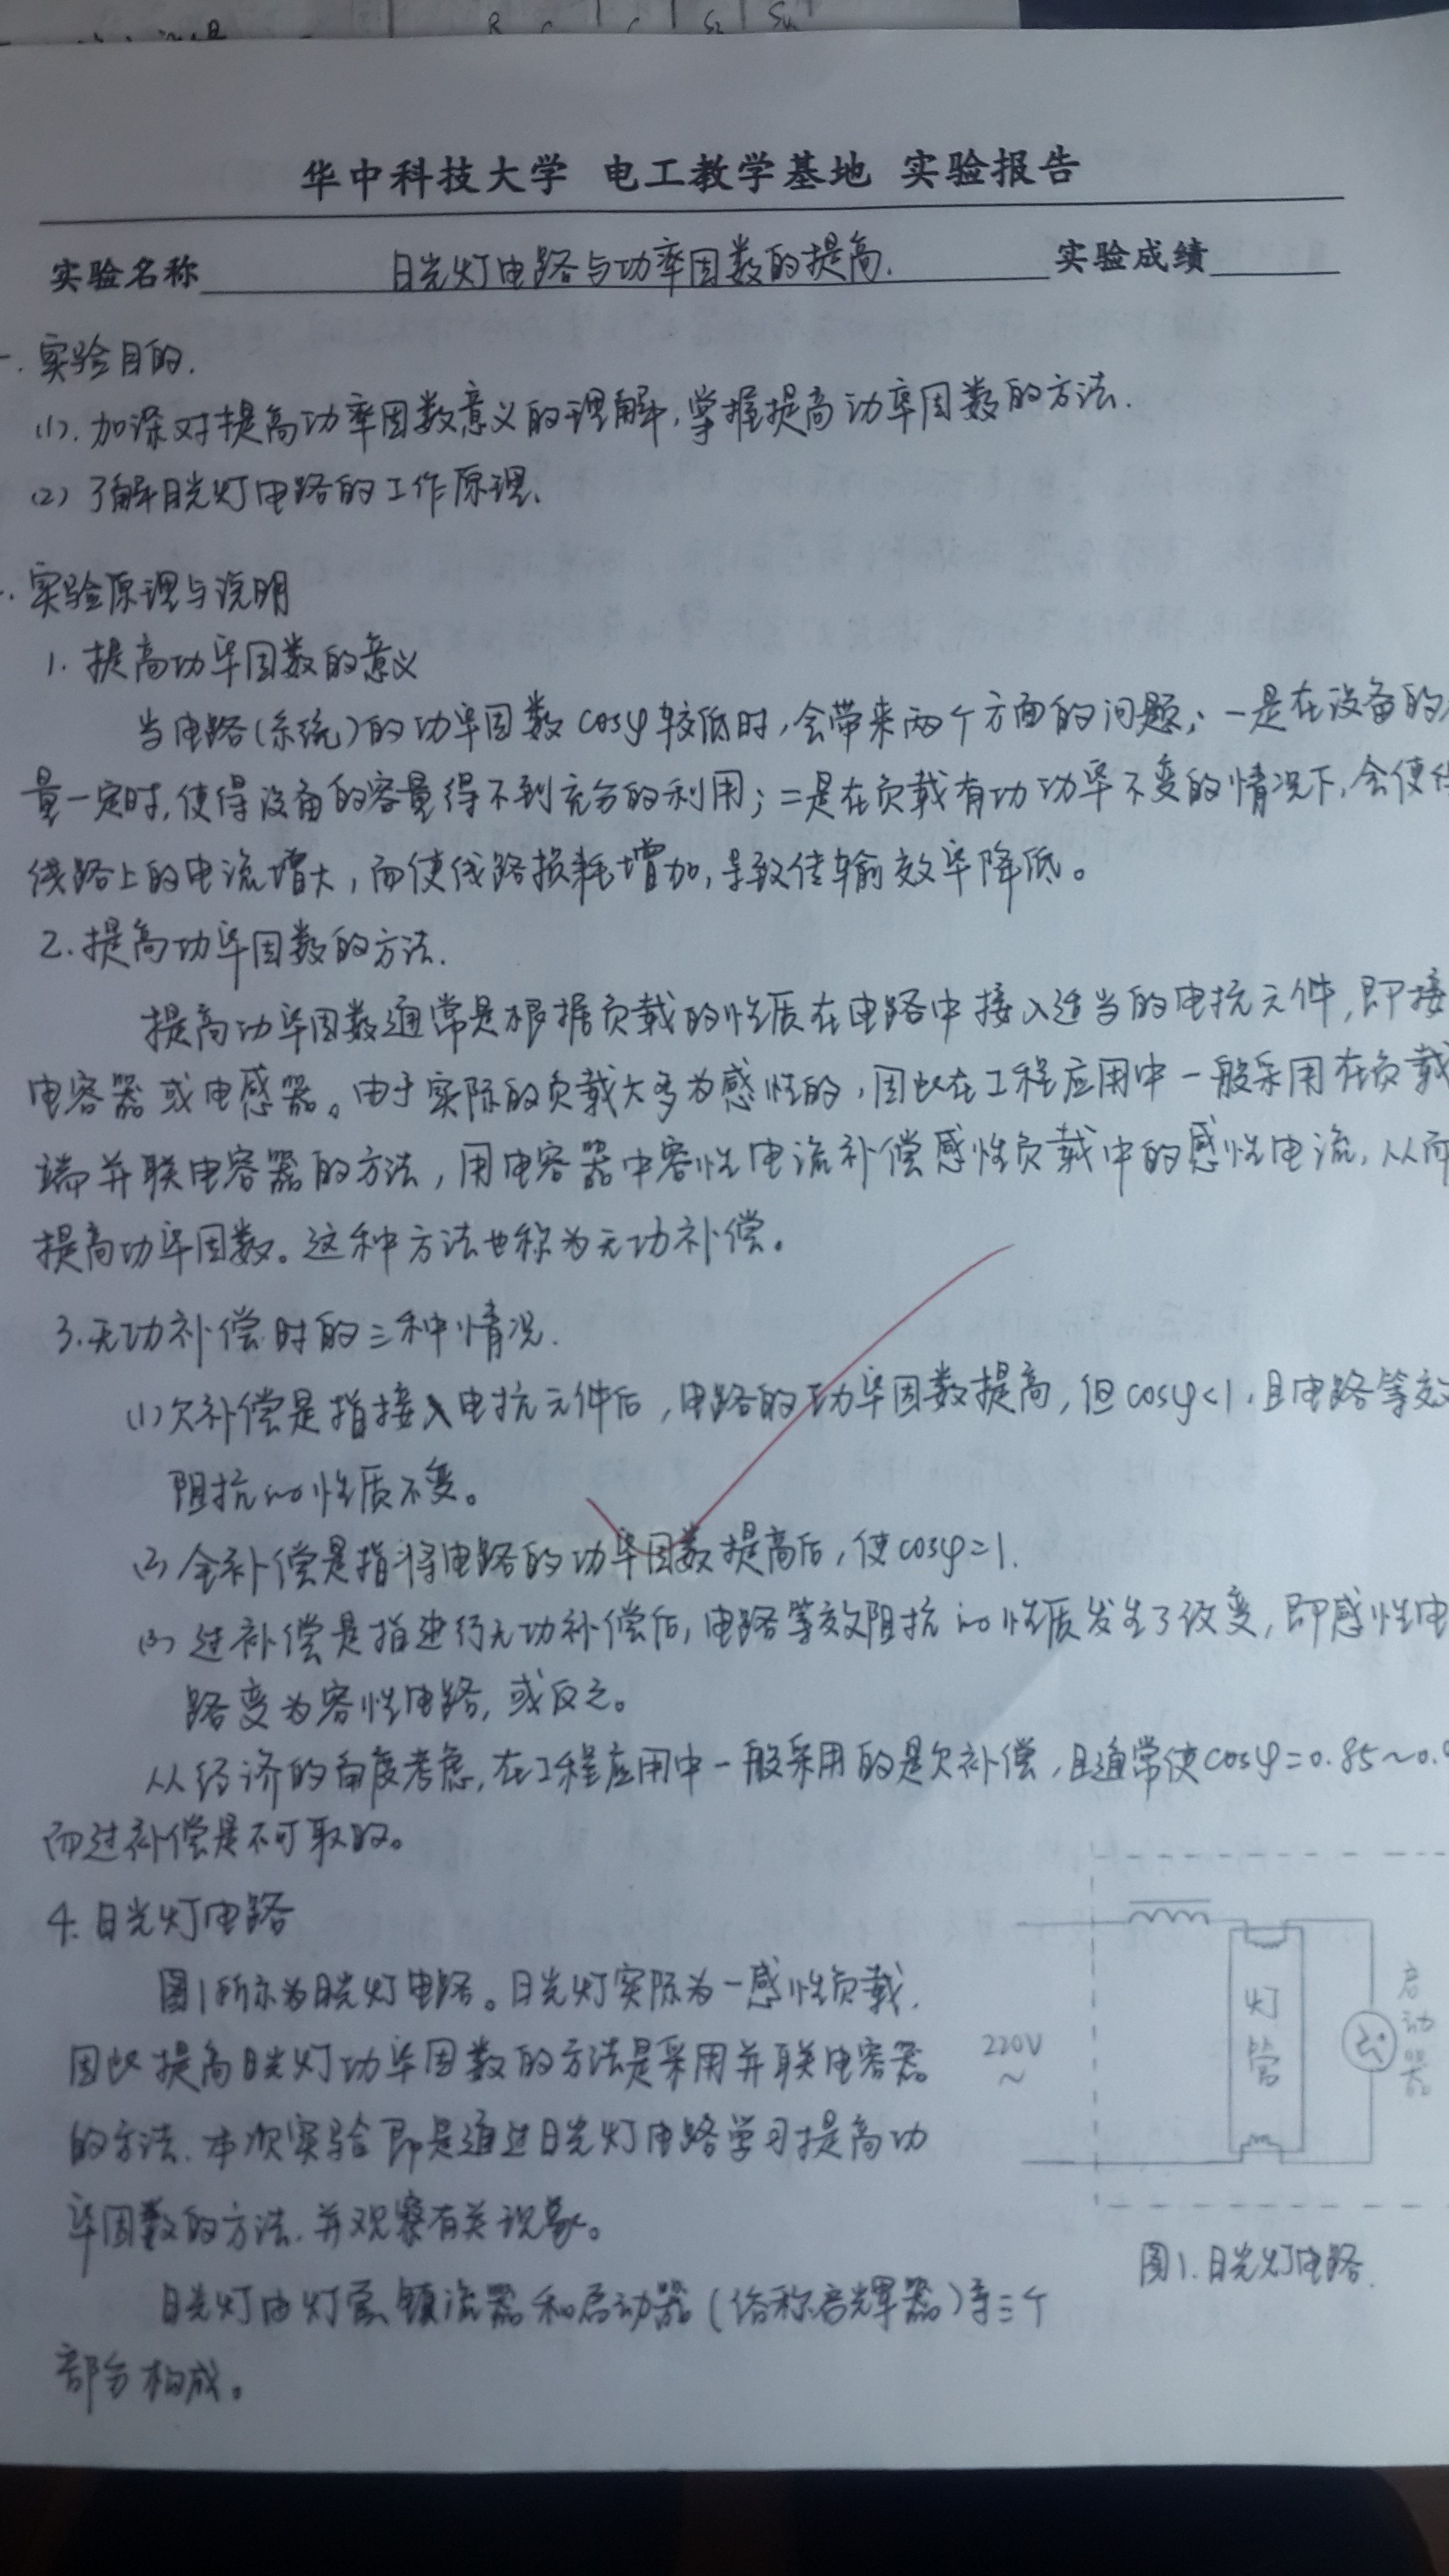 华中科技大学 电工教学基地 实验报告
实验名称 日光灯电路与功率因数的提高. 实验成绩
实验目的.
(1). 加深对提高功率因数意义的理解,掌握提高功率因数的方法.
(2) 了解日光灯电路的工作原理.
实验原理与说明
1. 提高功率因数的意义
当电路(系统)的功率因数cosφ较低时,会带来两个方面的问题;一是在设备的
量一定时,使得设备的容量得不到充分的利用;二是在负载有功功率不变的情况下,会使得
线路上的电流增大,而使线路损耗增加,导致传输效率降低。
2. 提高功率因数的方法.
提高功率因数通常是根据负载的性质在电路中接入适当的电抗元件,即接
电容器或电感器。由于实际的负载大多为感性的,因此在工程应用中一般采用在负载
端并联电容器的方法,用电容器中容性电流补偿感性负载中的感性电流,从而
提高功率因数。这种方法也称为无功补偿。
3. 无功补偿时的三种情况.
(1) 欠补偿是指接入电抗元件后,电路的功率因数提高,但cosφ<1,且电路等效
阻抗的性质不变。
(2) 全补偿是指将电路的功率因数提高后,使cosφ=1.
(3) 过补偿是指进行无功补偿后,电路等效阻抗的性质发生了改变,即感性电
路变为容性电路,或反之。
从经济的角度考虑,在工程应用中一般采用的是欠补偿,且通常使cosφ=0.85~0.9
而过补偿是不可取的。
4. 日光灯电路
图1所示为日光灯电路。日光灯实际为一感性负载,
因此提高日光灯功率因数的方法是采用并联电容器
的方法.本次实验即是通过日光灯电路学习提高功
率因数的方法.并观察有关现象。
220V
~
灯管
启动器
图1.日光灯电路.
日光灯由灯管、镇流器和启动器(俗称启辉器)等三个
部分构成。